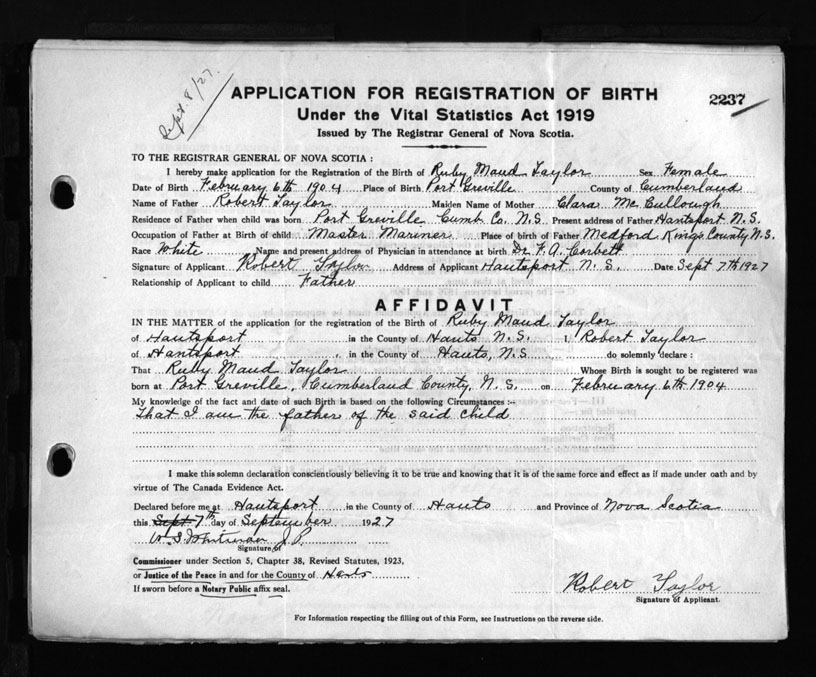 Sept. 8/27.
APPLICATION FOR REGISTRATION OF BIRTH
2237
Under the Vital Statistics Act 1919
Issued by The Registrar General of Nova Scotia.
TO THE REGISTRAR GENERAL OF NOVA SCOTIA :
I hereby make application for the Registration of the Birth of Ruby Maud Taylor Sex Female
Date of Birth February 6th 1904 Place of Birth Port Greville County of Cumberland
Name of Father Robert Taylor Maiden Name of Mother Clara Mc Cullough
Residence of Father when child was born Port Greville Cumb. Co. N.S. Present address of Father Hantsport N.S.
Occupation of Father at Birth of child Master Mariner Place of birth of Father Medford Kings County N.S.
Race White Name and present address of Physician in attendance at birth Dr. F. A. Corbett
Signature of Applicant Robert Taylor Address of Applicant Hantsport N. S. Date Sept 7th 1927
Relationship of Applicant to child Father
AFFIDAVIT
IN THE MATTER of the application for the registration of the Birth of Ruby Maud Taylor
of Hantsport in the County of Hants N.S. I, Robert Taylor
of Hantsport in the County of Hants, N.S do solemnly declare :
That Ruby Maud Taylor Whose Birth is sought to be registered was
born at Port Greville, Cumberland County, N. S. on February 6th 1904
My knowledge of the fact and date of such Birth is based on the following Circumstances :-
That I am the father of the said child
I make this solemn declaration conscientiously believing it to be true and knowing that it is of the same force and effect as if made under oath and by
virtue of The Canada Evidence Act.
Declared before me at Hantsport in the County of Hants and Province of Nova Scotia
this Sept 7th day of September 1927
J. P.
Signature of
Commissioner under Section 5, Chapter 38, Revised Statutes, 1923,
or Justice of the Peace in and for the County of Hants
If sworn before a Notary Public affix seal.
Robert Taylor
Signature of Applicant.
For Information respecting the filling out of this Form, see Instructions on the reverse side.